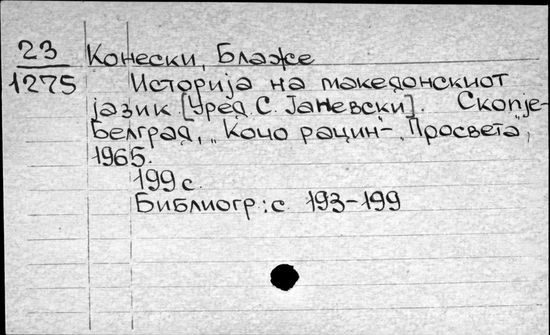 23
1275
Конески, Блаже
Историја на македонскиот
јазик [Уред. С. Јаневски]. Скопје-
Белград, "Кочо рацин"-"Просвета",
1965.
199 с.
Библиогр.: с 193-199